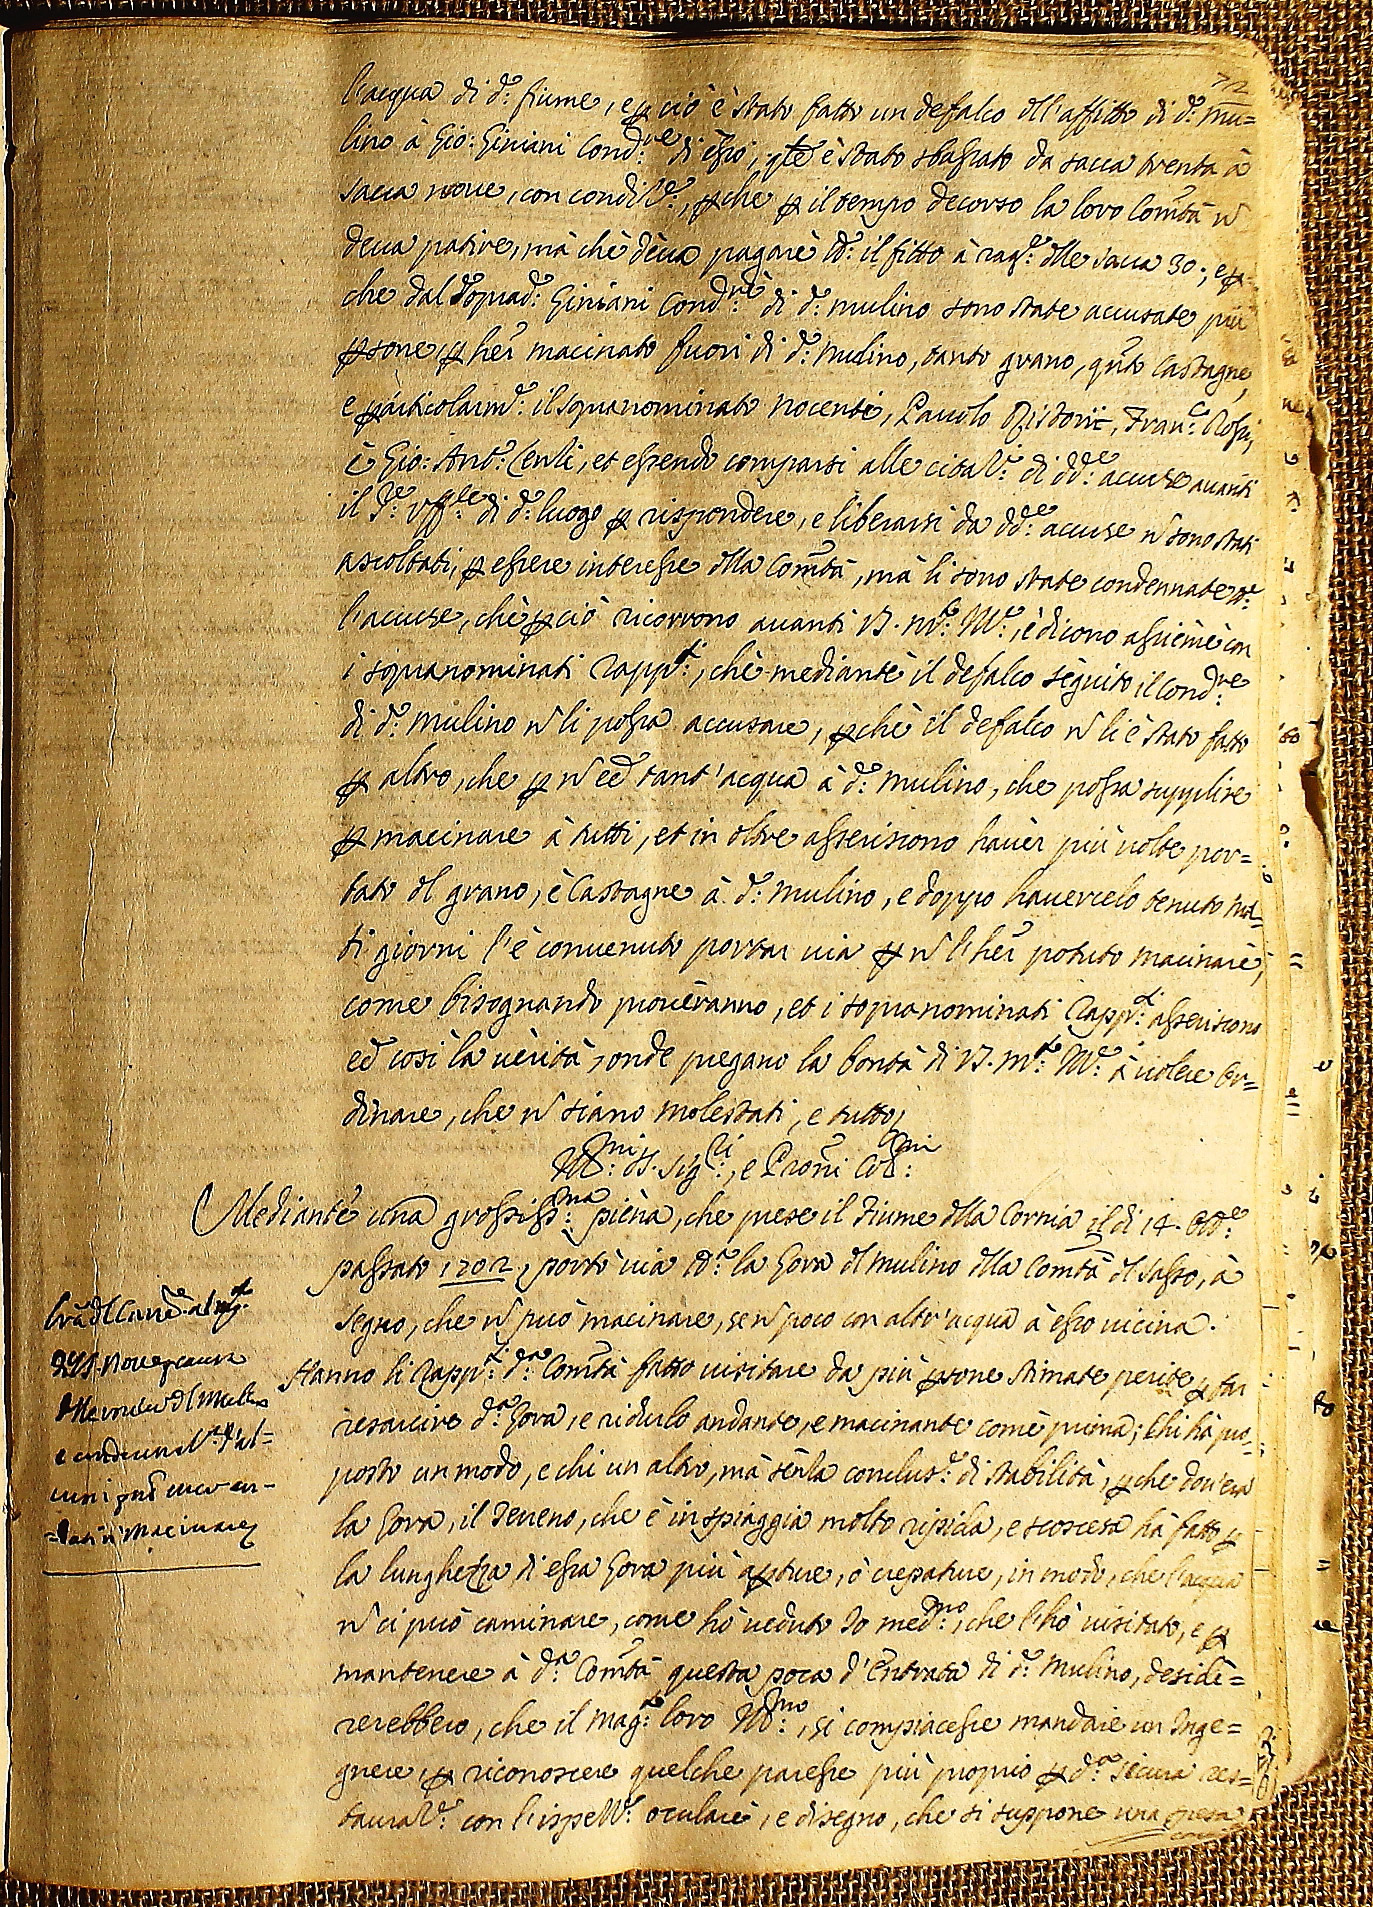 72
l'acqua di d.º fiume, e p ciò è stato fatto un defalco dll'affitto di d.º mu=
lino à Gio: Giniani Cond.re di esso, qle è stato sbassato da sacca trenta à
sacca noue, con condiz.e, pche p il tempo decorso la loro Com.tà ñ
deua patire, mà chè dèua pagarè il fitto à rag.e dlle sacca 30:, e p
che dal soprad.º Giniani Cond.re di d.º mulino sono state accusate più
psone, p hèr macinato fuori di d.º mulino, tanto grano, qnto Castagne,
e particolarm.e il sopranominato Nocenti, Pauolo Ristorii, Fran.co Rossi,
è Gio: Ant.º Cenli, et essendo comparsi alle citaz.i di dd.e accuse auanti
il S.re Uff.le di d.º luogo p rispondere, e liberarsi da dd.e accuse ñ sono stati
ascoltati, p essere interesse dlla Com.tà, mà li sono state condennate
l'accuse, chè p ciò ricorrono auanti è dicono assième con
i sopranominati Rapp.ti, chè mediantè il defalco sèguito il Cond.re
di d.º mulino ñ li possa accusare, pchè il defalco ñ li è stato fatto
p altro, che p ñ eê tant'acqua à d.º mulino, che possa supplire
p macinare à tutti, et in oltre asseriscono hauèr più uolte por=
tato dl grano, è Castagne à d.º mulino, e doppo hauercelo tenuto mol=
ti giorni l'è conuenuto portar uia p ñ l'hèr potuto macinarè,
come bisognando prouèranno, et i sopranominati Rapp.ti asseriscono
eê così la uèrità, onde pregano la bontà di à uolere or=
dinare, che ñ siano molestati, e tutto
Ill.mi SS. Sig.ri, e Proñi Col.mi
Mediante una grossiss.ma pièna, che prese il Fiume dlla Cornia il di 14. Ott.e
passato 1702, portò uia la Gora dl Mulino dlla Com.tà dl Sasso, à
segno, che ñ può macinare, se ñ poco con altr'acqua à esso uicina.
Hanno li Rapp.ti d.a Com.tà fatto uisitare da più psone stimate perite p far
resarcire d.a Gora, e ridurlo andante, e macinante comè prima; Chi hà pro=
posto un modo, e chi un altro, mà sènza conclus.e di stabilità, pche dou'era
la Gora, il Terreno, che è in spiaggia molto ripida, e scoscesa hà fatto p
la lunghezza di essa Gora più apture, ò crepature, in modo, che l'acqua
ñ ci può caminare, come hò ueduto Io med.mo, che l'hò uisitato, e p
mantenere à d.a Com.tà questa poca d'Entrata di d.º Mulino, desidè=
rerebbero, che il Mag.to loro Ill.mo, si compiacesse mandare un Inge=
gnere, p riconoscere quelche paresse più proprio p d.a sicura res=
tauraz.e con l'ispez.e oculare, e disegno, che si suppone una spesa
e condennaz.e d'al=